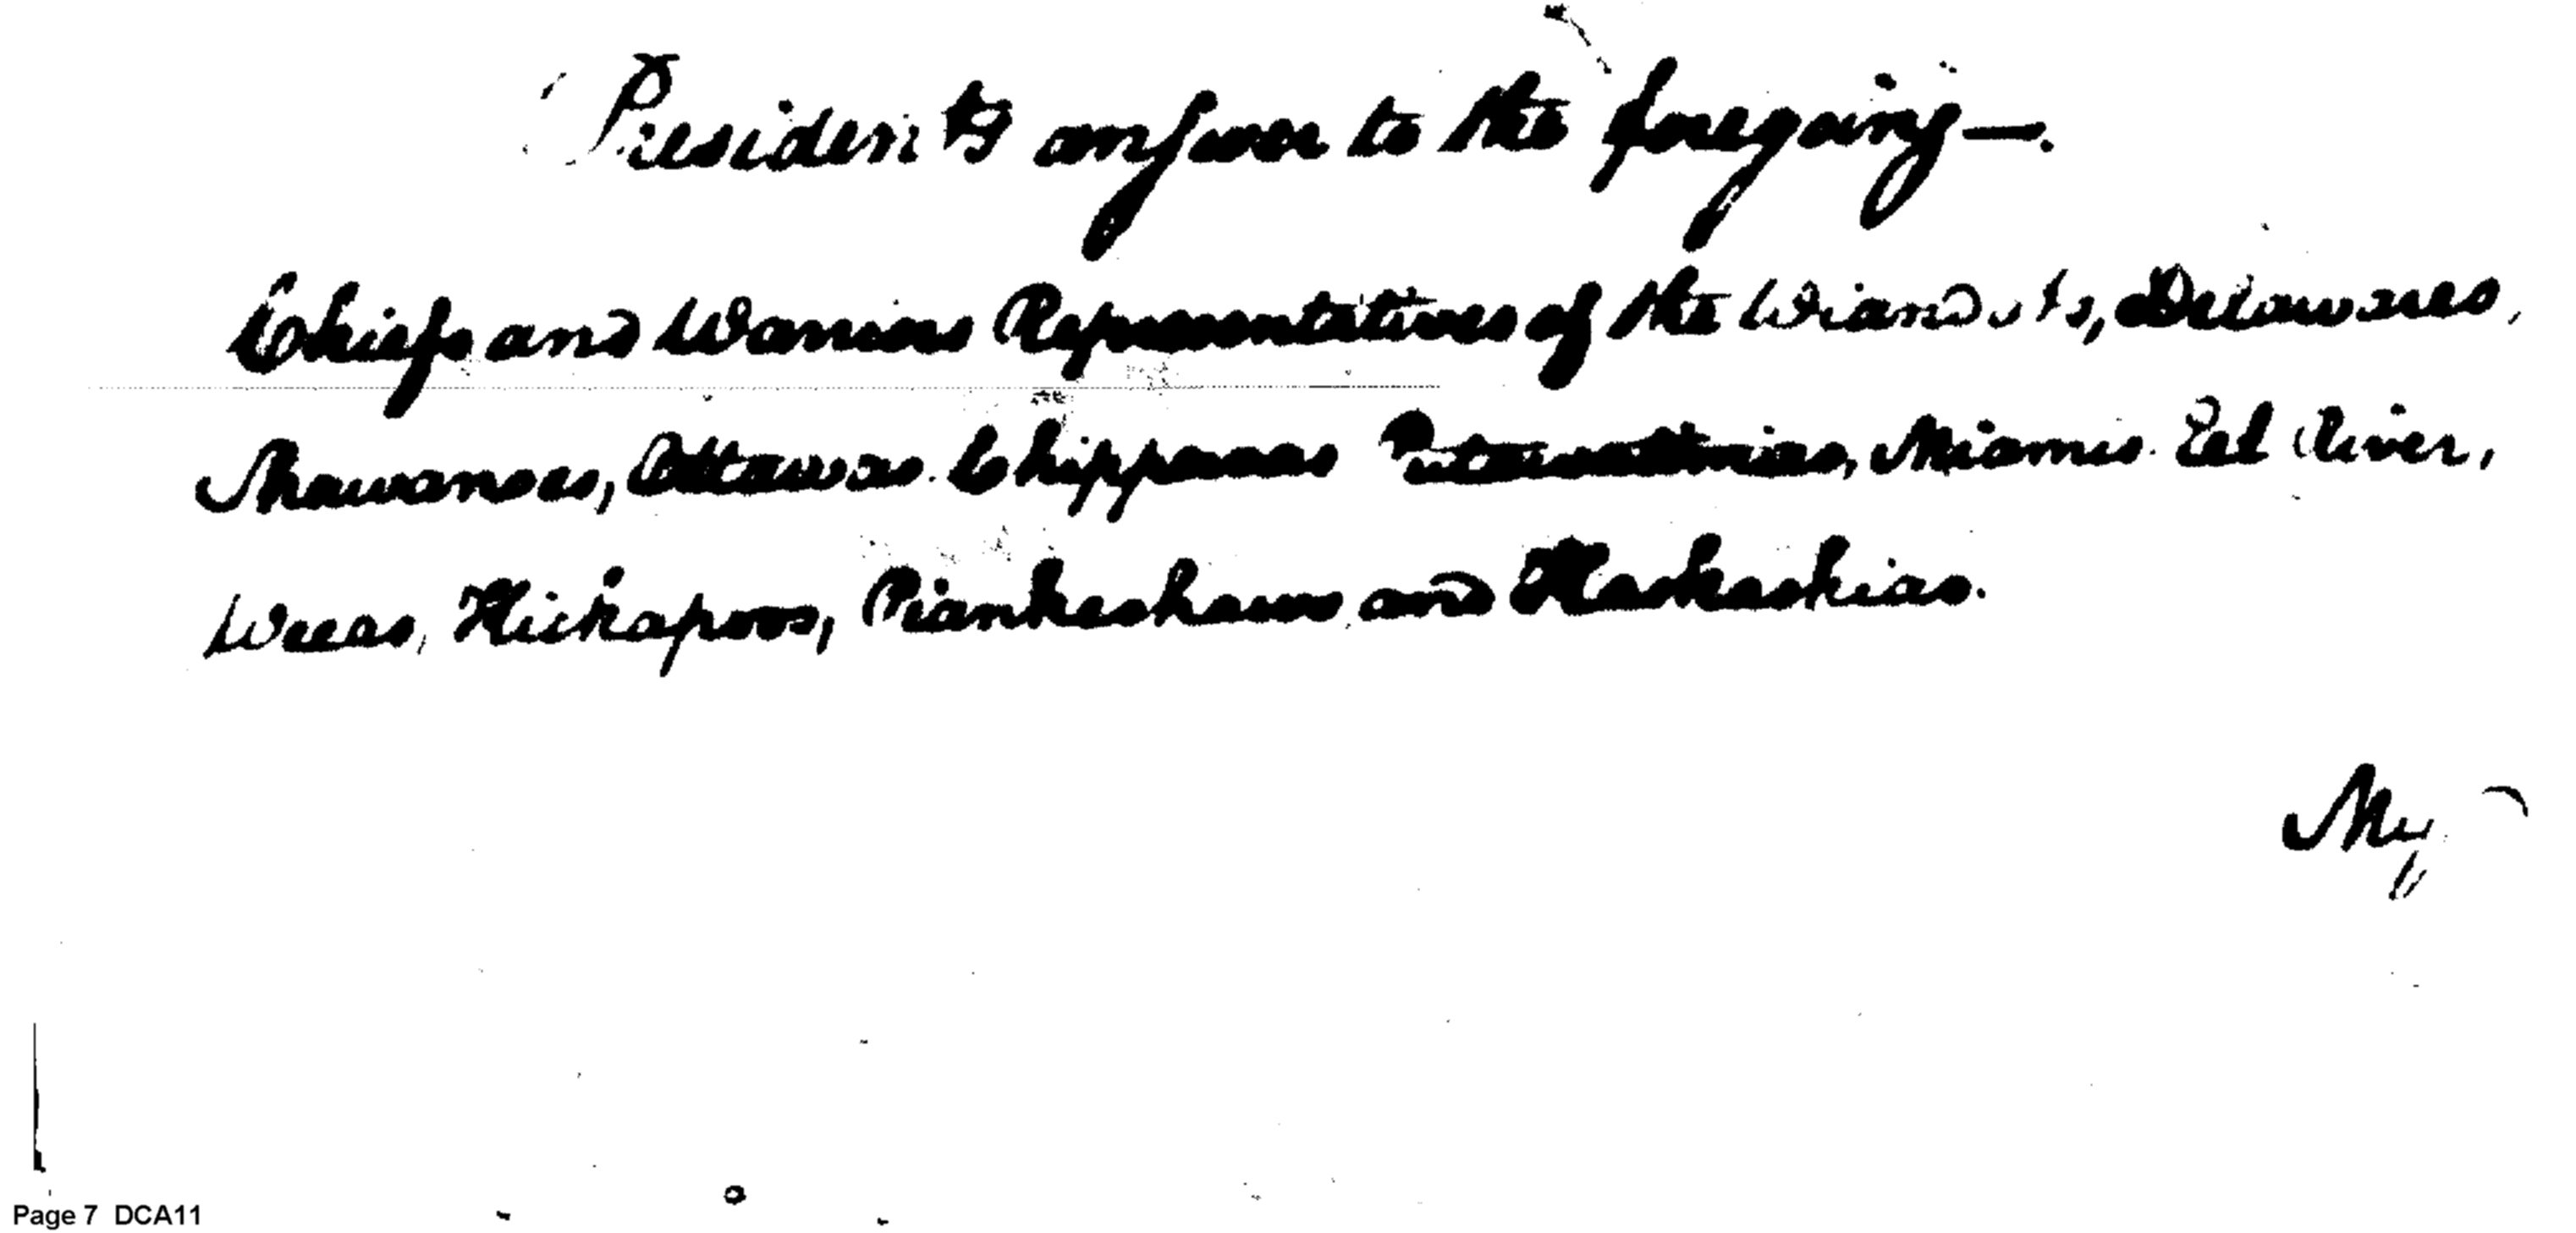 Presidents answer to the foregoing —.
Chiefs and Warriors Representatives of the Wiandots, Delawares,
Shawanoes, Ottawas. Chippawas Putawattimies, Miamis. Eel River,
Weeas, Kickapoos, Piankeshaws and Kaskaskias.
My
Page 7 DCA11